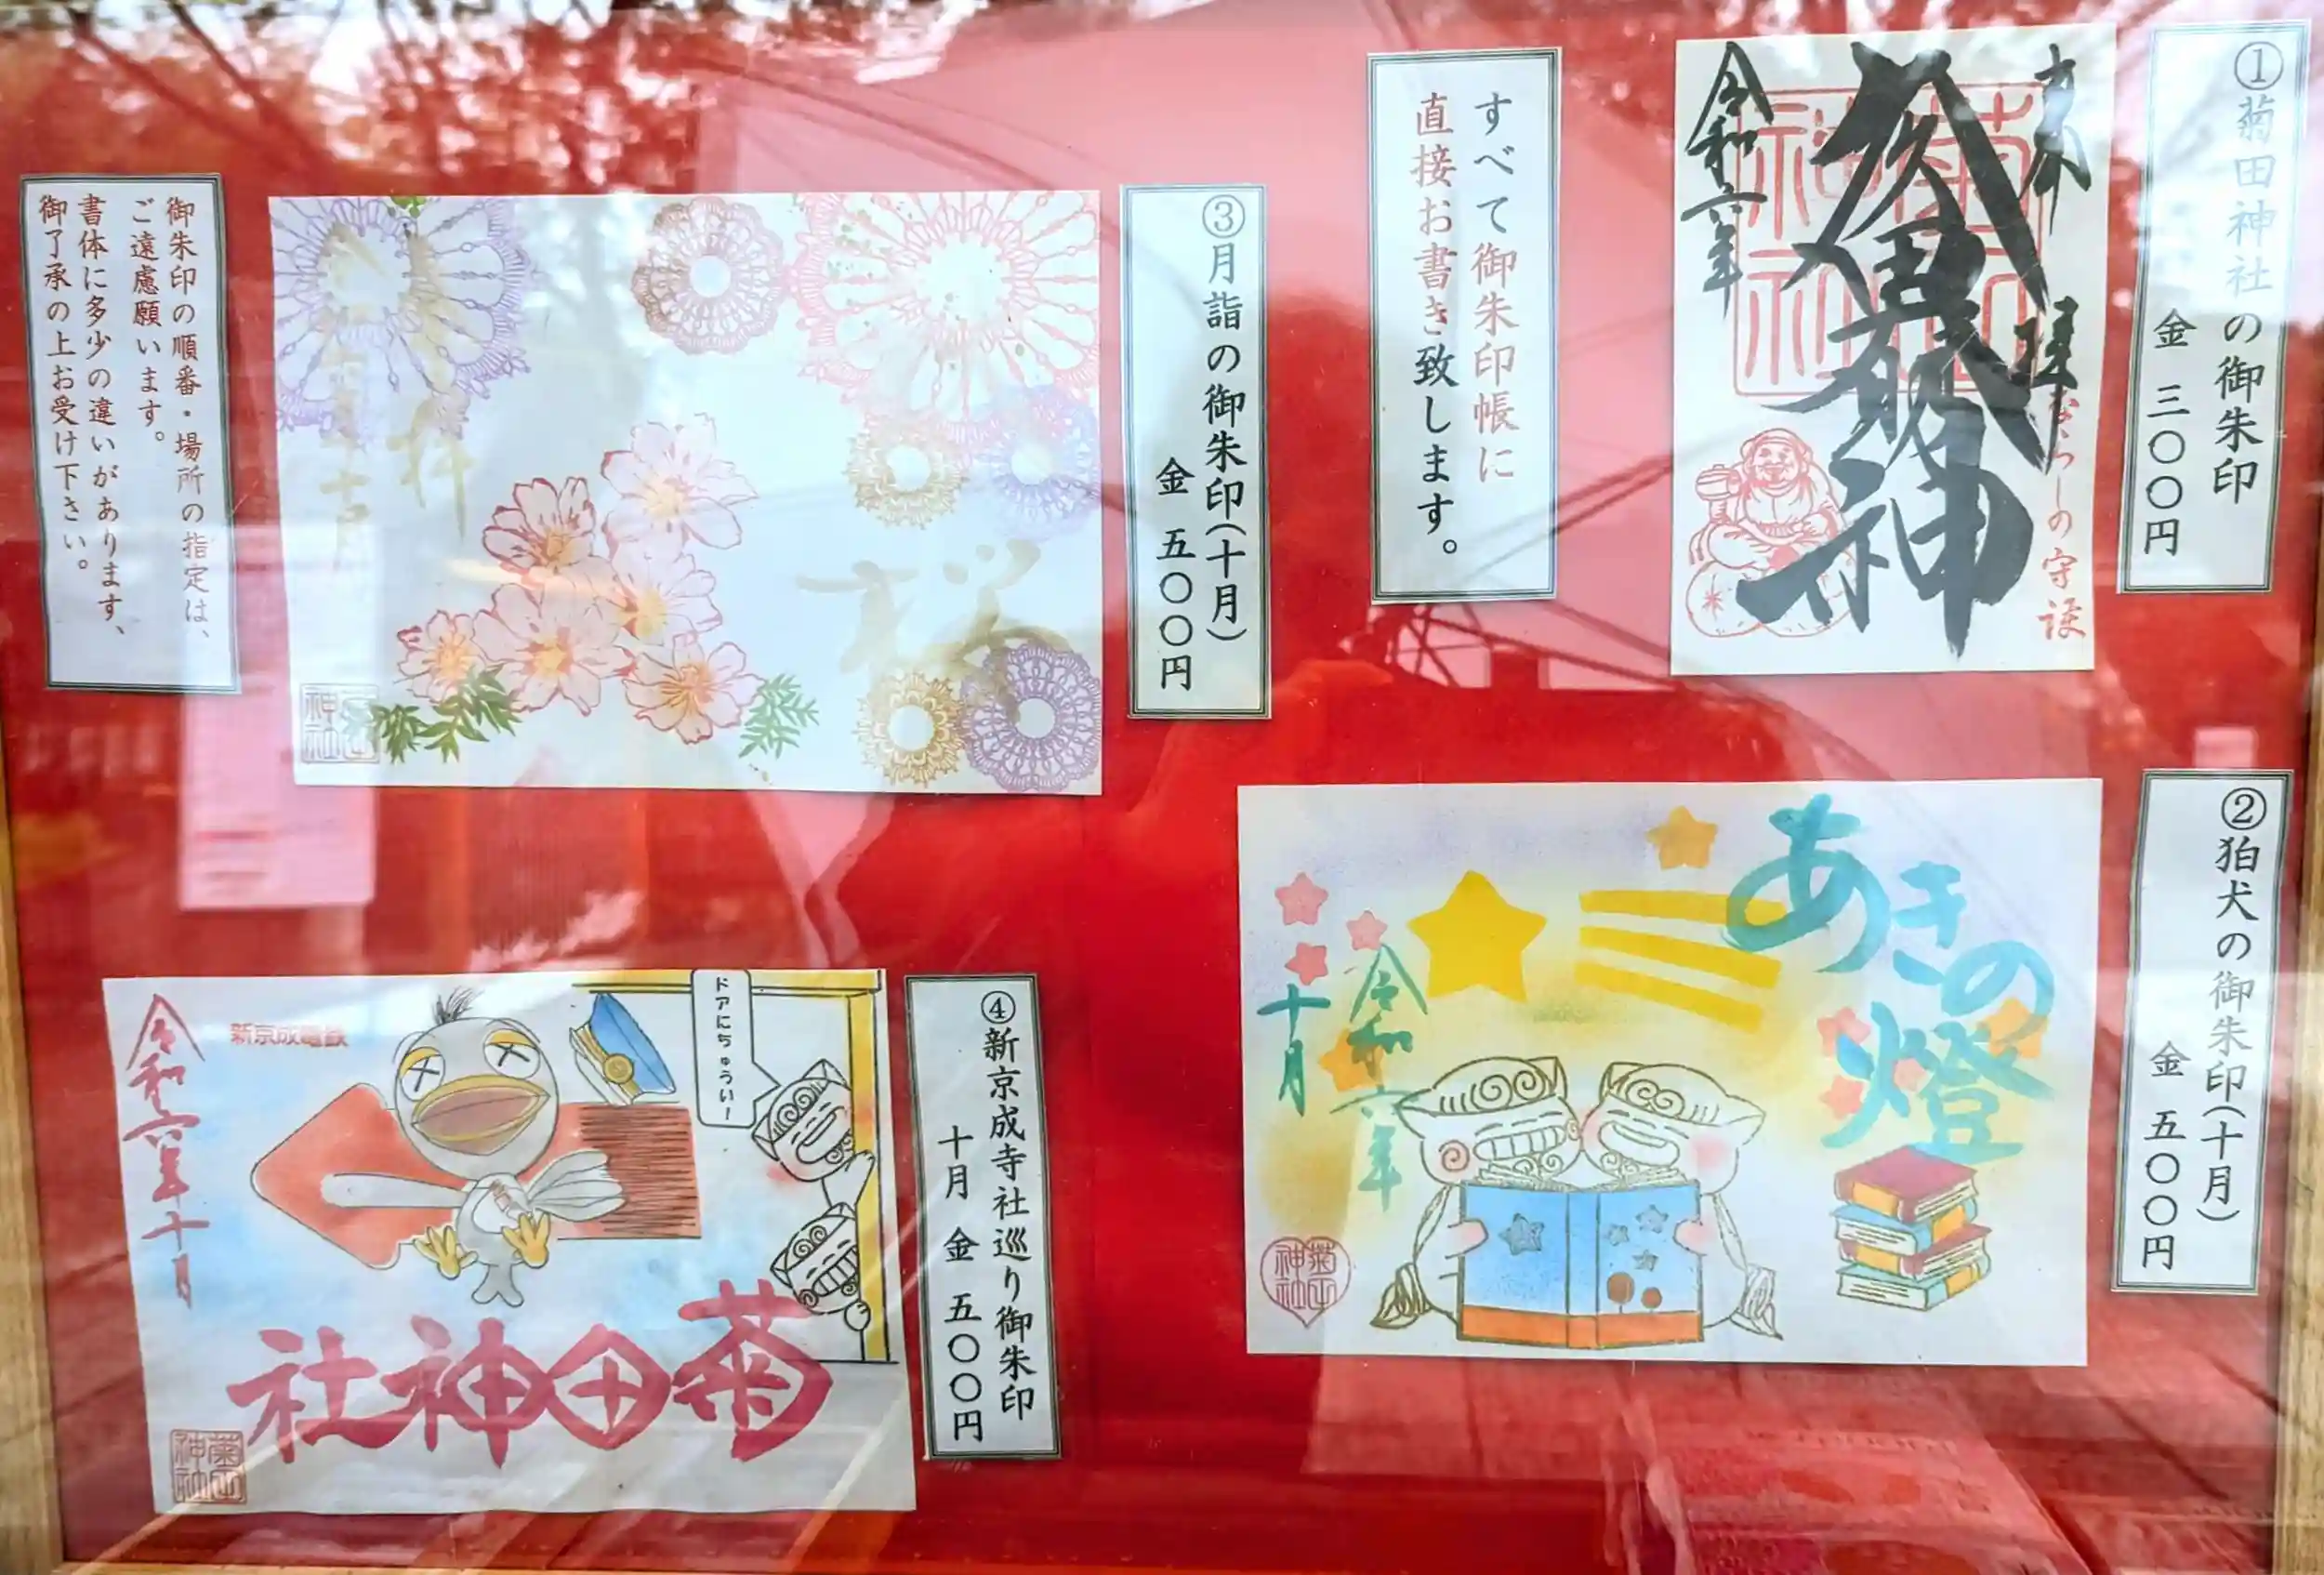 ①菊田神社の御朱印
金 三〇〇円
奉拝
久田大神
令和六年
ならしの守護
すべて御朱印帳に
直接お書き致します。
②狛犬の御朱印(十月)
金 五〇〇円
あきの
燈
令和六年
十月
菊田
神社
③月詣の御朱印(十月)
金 五〇〇円
菊田
神社
御朱印の順番・場所の指定は、
ご遠慮願います。
書体に多少の違いがあります、
御了承の上お受け下さい。
④新京成寺社巡り御朱印
十月 金 五〇〇円
ドアにちゅうい!
新京成電鉄
令和六年十月
菊田神社
菊田
神社